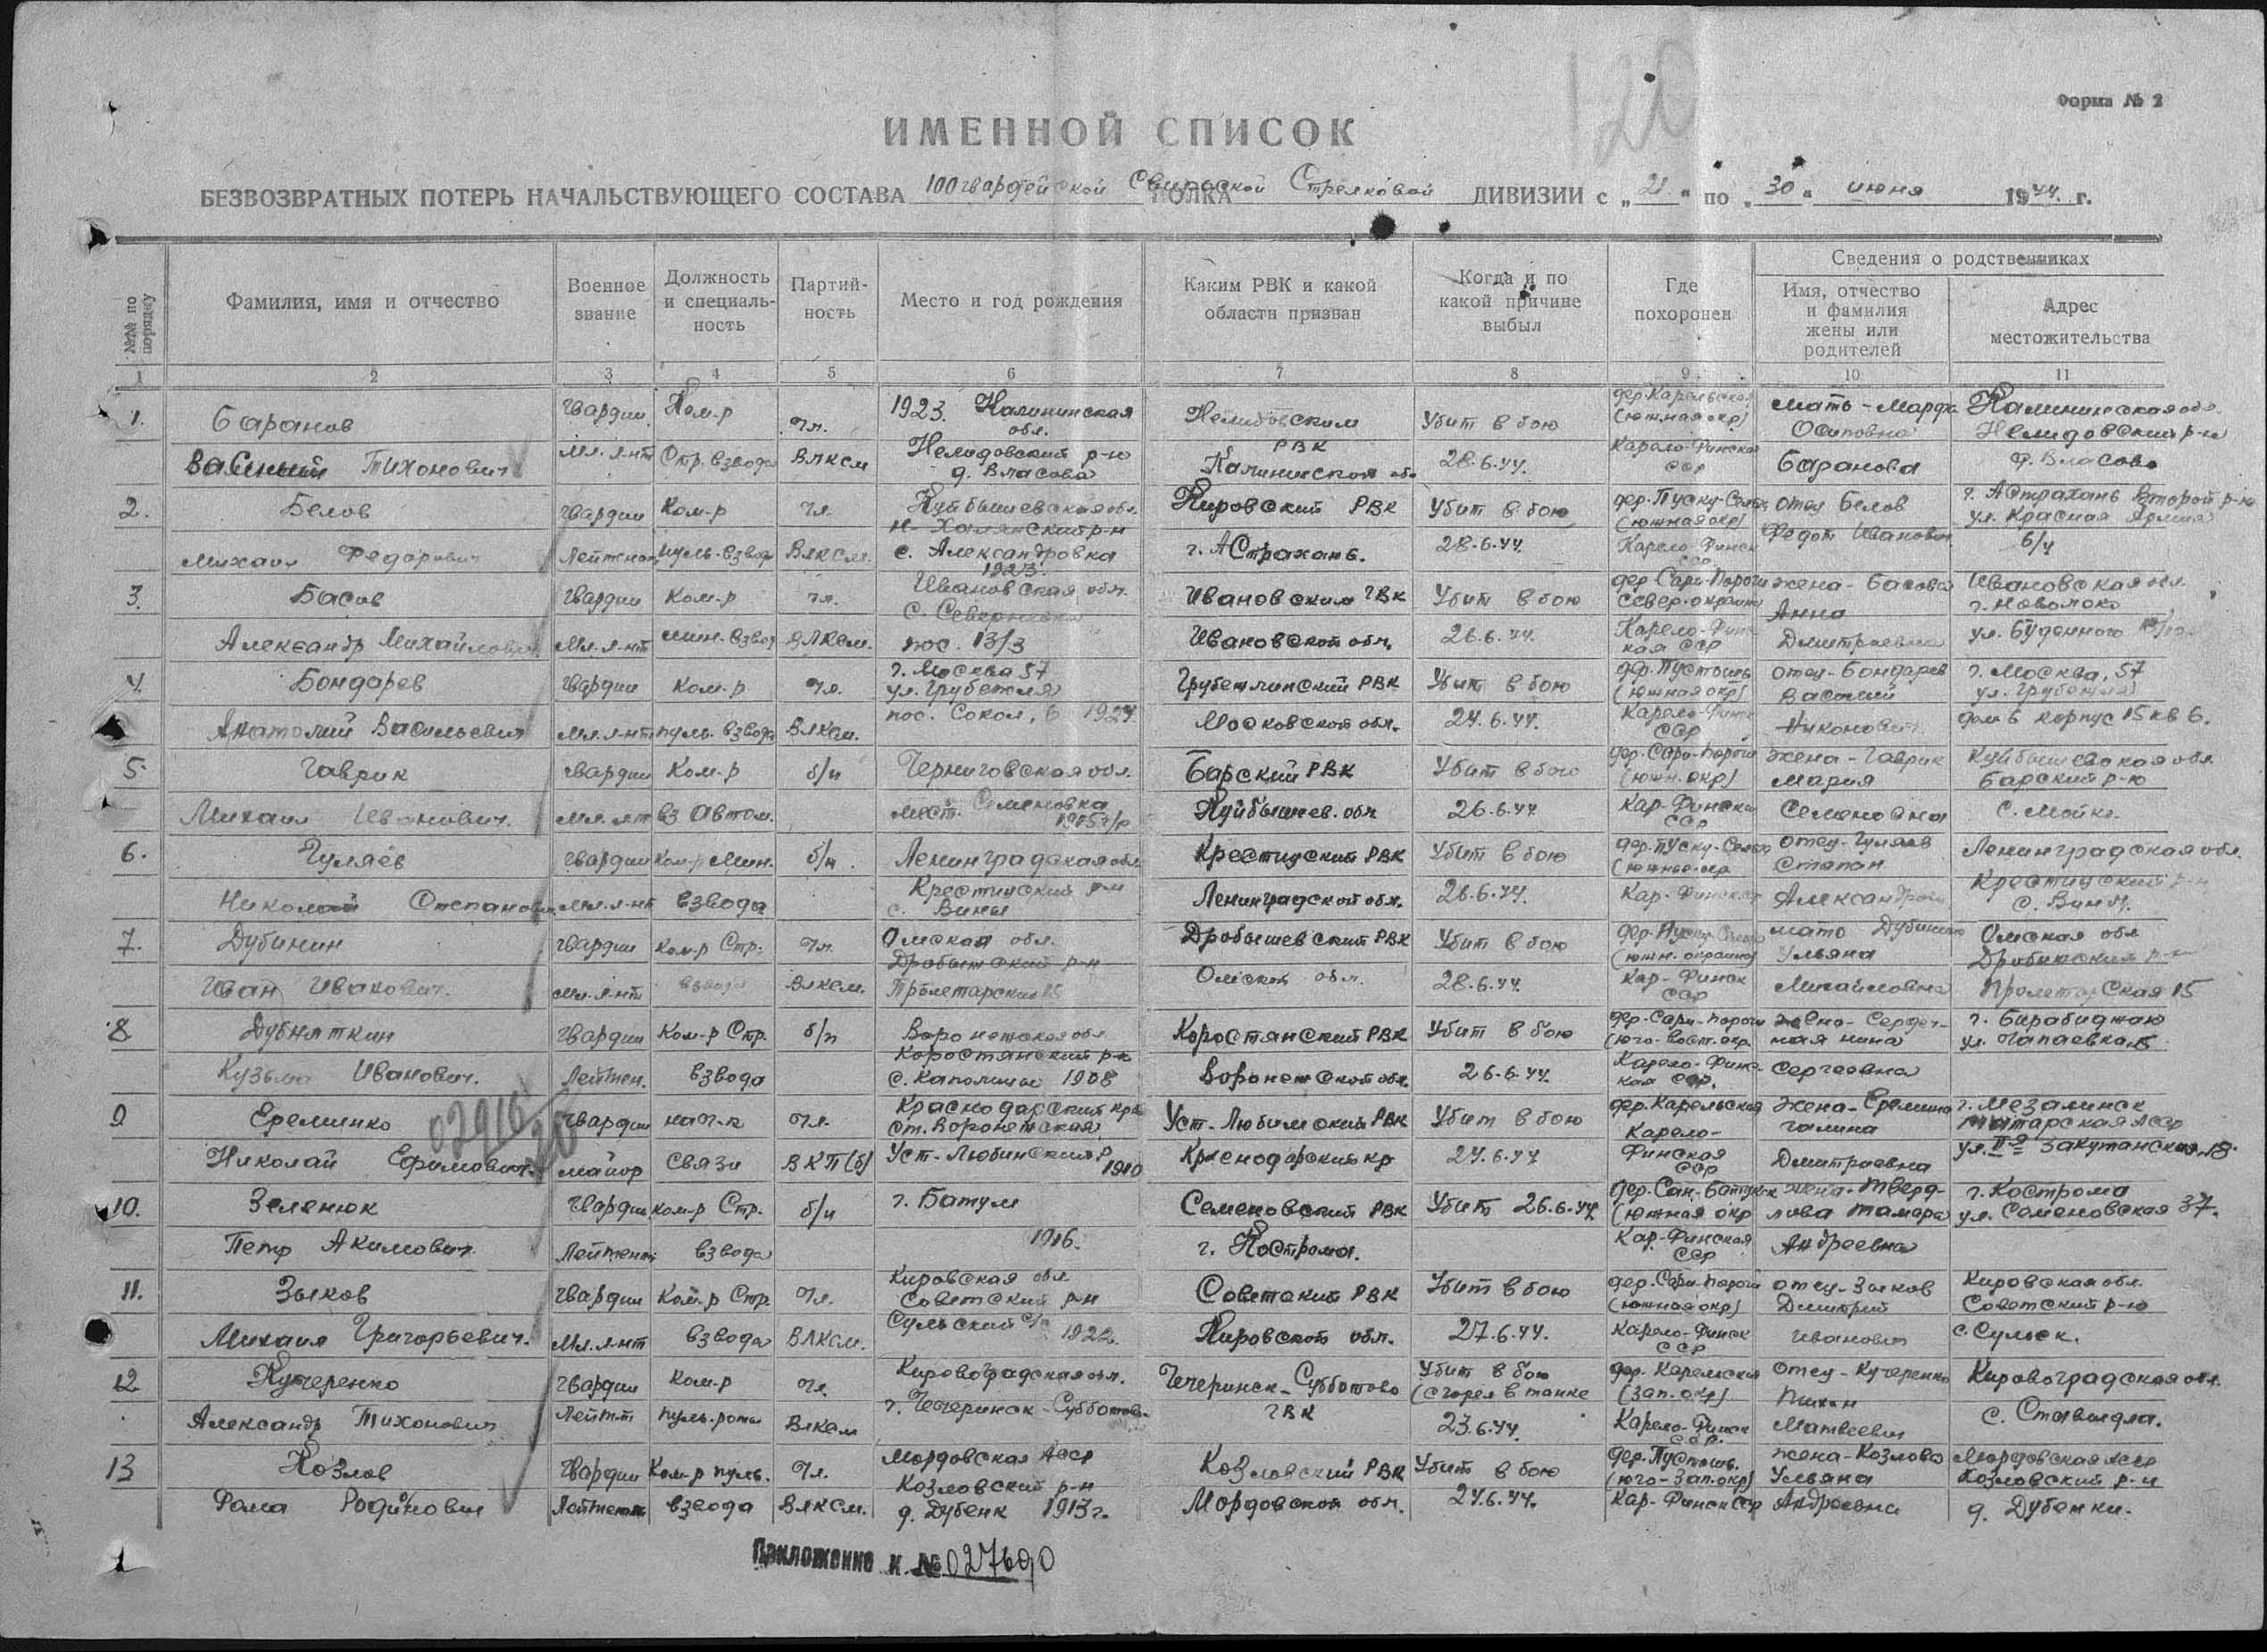 120
Форма № 2
ИМЕННОЙ СПИСОК
БЕЗВОЗВРАТНЫХ ПОТЕРЬ НАЧАЛЬСТВУЮЩЕГО СОСТАВА 100 гвардейской Свирской Стрелковой ПОЛКА ДИВИЗИИ с „21" по „30" июня 1944 г.
№№ по порядку
Фамилия, имя и отчество
Военное звание
Должность и специаль-ность
Партий-ность
Место и год рождения
Каким РВК и какой области призван
Когда и по какой причине выбыл
Где похоронен
Сведения о родственниках
Имя, отчество и фамилия жены или родителей
Адрес местожительства
1 2 3 4 5 6 7 8 9 10 11
1. Баранов гвардии Ком-р чл. 1923. Калининская обл. Нелидовским РВК Убит в бою дер. Карельская (южная окр) мать - Марфа Осиповна Калининская обл. Нелидовский р-н
Тихонович мл. л-нт Стр. взвода ВЛКСМ Нелидовский р-н д. Власово Калининской обл 28.6.44. Карело-Финская ССР Баранова д. Власово
2. Белов гвардии Ком-р чл. Куйбышевская обл. Кировский РВК Убит в бою (южная окр) отец Белов г. Астрахань Второй р-н ул. Красная Армия
Михаил Федорович Лейтенант пуль. взвода ВЛКСМ. с. Александровка 1923. г. Астрахань. 28.6.44. Карело-Финск ССР Федот Иванович б/ч
3. Басов гвардии Ком-р чл. Ивановская обл. Ивановским ГВК Убит в бою дер. Сари-Пороги север. окраина жена - Басова Анна Ивановская обл.
Александр Михайлович мл. л-нт мин. взвод ВЛКСМ. пос. 13/3 Ивановской обл. 26.6.44. Карело-Финс кая ССР Дмитриевна ул. Буденного
4. Бондарев гвардии Ком-р чл. г. Москва 57 РВК Убит в бою дер. Пустошь (южная окр) отец - Бондарев Василий г. Москва, 57
Анатолий Васильевич мл. л-нт пуль. взвода ВЛКСМ. пос. Сокол, 6 1924. Московской обл. 24.6.44. Карело-Финск ССР Никонович дом 6 корпус 15 кв 6.
5. Гаврик гвардии Ком-р б/п Черниговская обл. Барский РВК Убит в бою дер. Сари-Пороги (южн. окр) жена - Гаврик Мария Куйбышевская обл Барский р-н
Михаил Иванович. мл. лт вз Автом. мест. Семеновка 1915 г/р Куйбышев. обл 26.6.44 Кар-Финская ССР Семеновна
6. Гуляев гвардии Ком-р мин. б/п Ленинградская обл. Крестицкий РВК Убит в бою отец - Гуляев Степан Ленинградская обл.
Николай Степанович мл. л-нт взвода Крестицкий р-н с. Вины Ленинградской обл. 28.6.44. Кар-Финск. Крестицкий р-н с. Вины.
7. Дубинин гвардии Ком-р Стр. чл. Омская обл. Дробышевский РВК Убит в бою (южн. окраина) мать Ульяна Омская обл
Иван Иванович. мл. л-нт взвода ВЛКСМ. Пролетарская 15 Омской обл. 28.6.44. Кар-Финск ССР Михайловна Пролетарская 15
8 Дубняткин гвардии Ком-р Стр. б/п Воронежская обл Коростянский РВК Убит в бою дер. Сари-Пороги (юго-вост. окр. жена - Сердеч-ная Нина г. Биробиджан
Кузьма Иванович. Лейтен. взвода Коростянский р-н 1908 Воронежской обл. 26.6.44. Карело-Финс-кая ССР. Сергеевна
9 Еременко гвардии нач-к чл. Краснодарский край ст. Воронежская Уст-Любимский РВК Убит в бою дер. Карельская жена - Галина г. Мезалинск Татарская АССР
Николай Ефимович. майор связи ВКП(б) 1910 Краснодарский кр 24.6.44 Карело-Финская ССР Дмитриевна
02910
20
10. Зеленюк гвардии ком-р Стр. б/п г. Батум Семеновский РВК Убит 26.6.44 (южная окр жена - Тверд-лова Тамара г. Кострома ул. Семеновская 37.
Петр Акимович Лейтенан взвода 1916. г. Кострома. Кар-Финская ССР Андреевна
11. Зыков гвардии Ком-р Стр. чл. Кировская обл Советский р-н Советский РВК Убит в бою дер. Сари-Пороги (южная окр) отец - Зыков Дмитрий Кировская обл. Советский р-н
Михаил Григорьевич. мл. л-нт взвода ВЛКСМ. Кировской обл. 27.6.44. Карело-Финск ССР Иванович с. Сульск.
12 Кучеренко гвардии Ком-р чл. Кировоградская обл. Чечеринск-Субботово ГВК Убит в бою (сгорел в танке дер. Карельская (зап. окр) отец - Кучеренко Тихон Кировоградская обл.
Александр Тихонович Лейт-т пуль. роты ВЛКСМ г. Чечеринск-Субботово 23.6.44. Карело-Финск ССР. Матвеевич с. Ставидла.
13 Козлов гвардии Ком-р пуль. чл. Мордовская АССР Козловский р-н Козловский РВК Убит в бою дер. Пустошь. (юго-зап. окр) жена - Козлова Ульяна Мордовская АССР Козловский р-н
Фома Родионович Лейтенант взвода ВЛКСМ. д. Дубенк 1913 г. Мордовской обл. 24.6.44. Кар-Финск ССР Андреевна д. Дубенки.
Приложение к № 027690